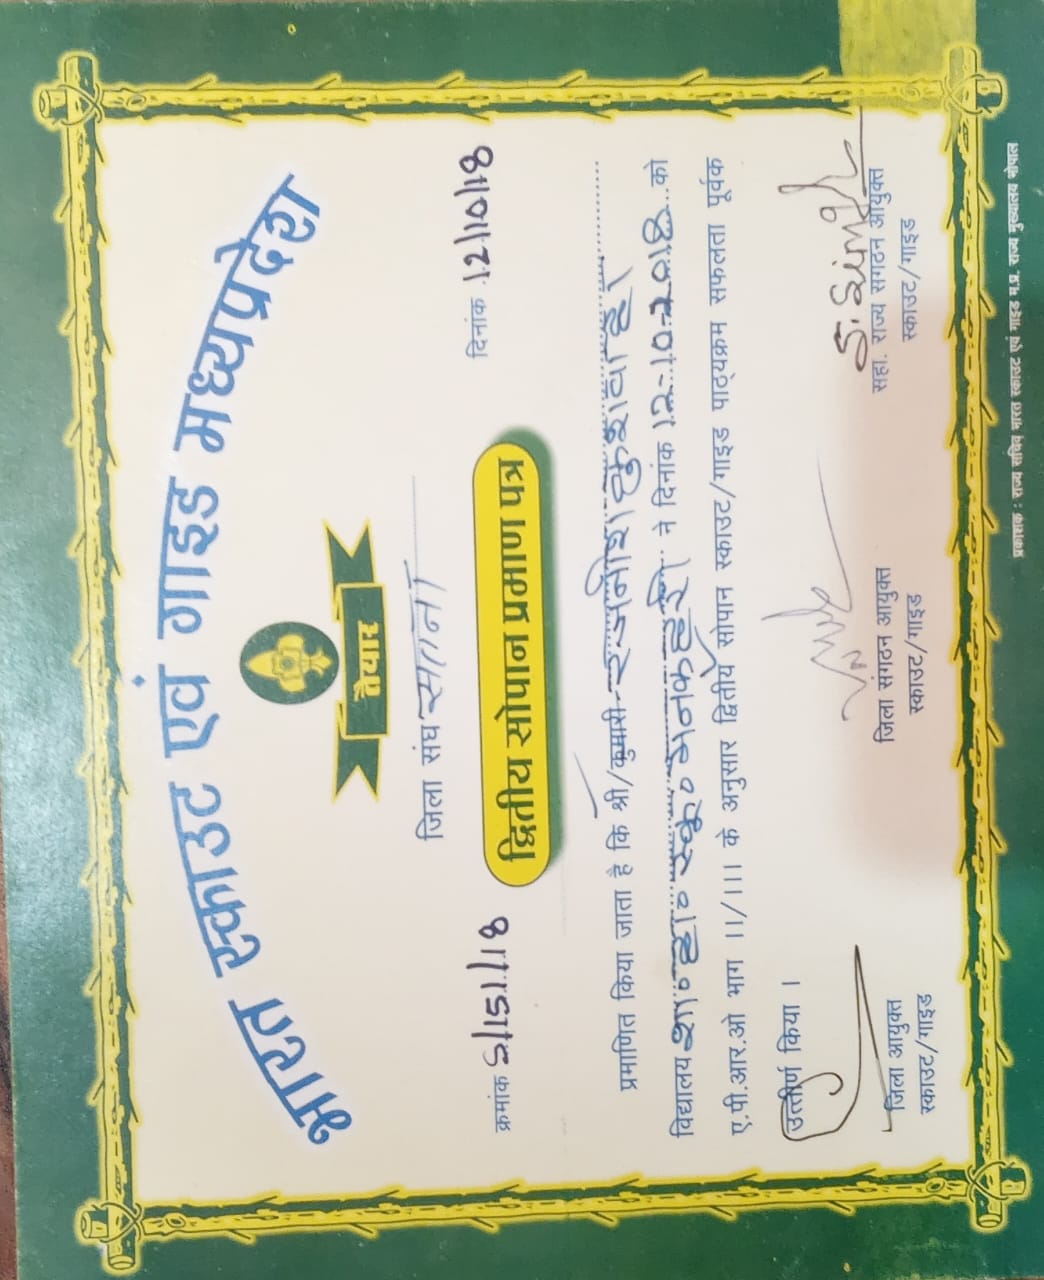 भारत स्काउट एवं गाइड मध्यप्रदेश
तैयार
जिला संघ सतना
क्रमांक S/151/18
दिनांक 12/10/18
द्वितीय सोपान प्रमाण पत्र
प्रमाणित किया जाता है कि श्री/कुमारी रजनीश कुशवाहा
विद्यालय शा० हा० स्कू० मनकहरी ने दिनांक 12-10-2018 को
ए.पी.आर.ओ भाग II/III के अनुसार द्वितीय सोपान स्काउट/गाइड पाठ्यक्रम सफलता पूर्वक
उत्तीर्ण किया ।
S. Singh
जिला आयुक्त
स्काउट/गाइड
जिला संगठन आयुक्त
स्काउट/गाइड
सहा. राज्य संगठन आयुक्त
स्काउट/गाइड
प्रकाशक : राज्य सचिव भारत स्काउट एवं गाइड म.प्र. राज्य मुख्यालय भोपाल